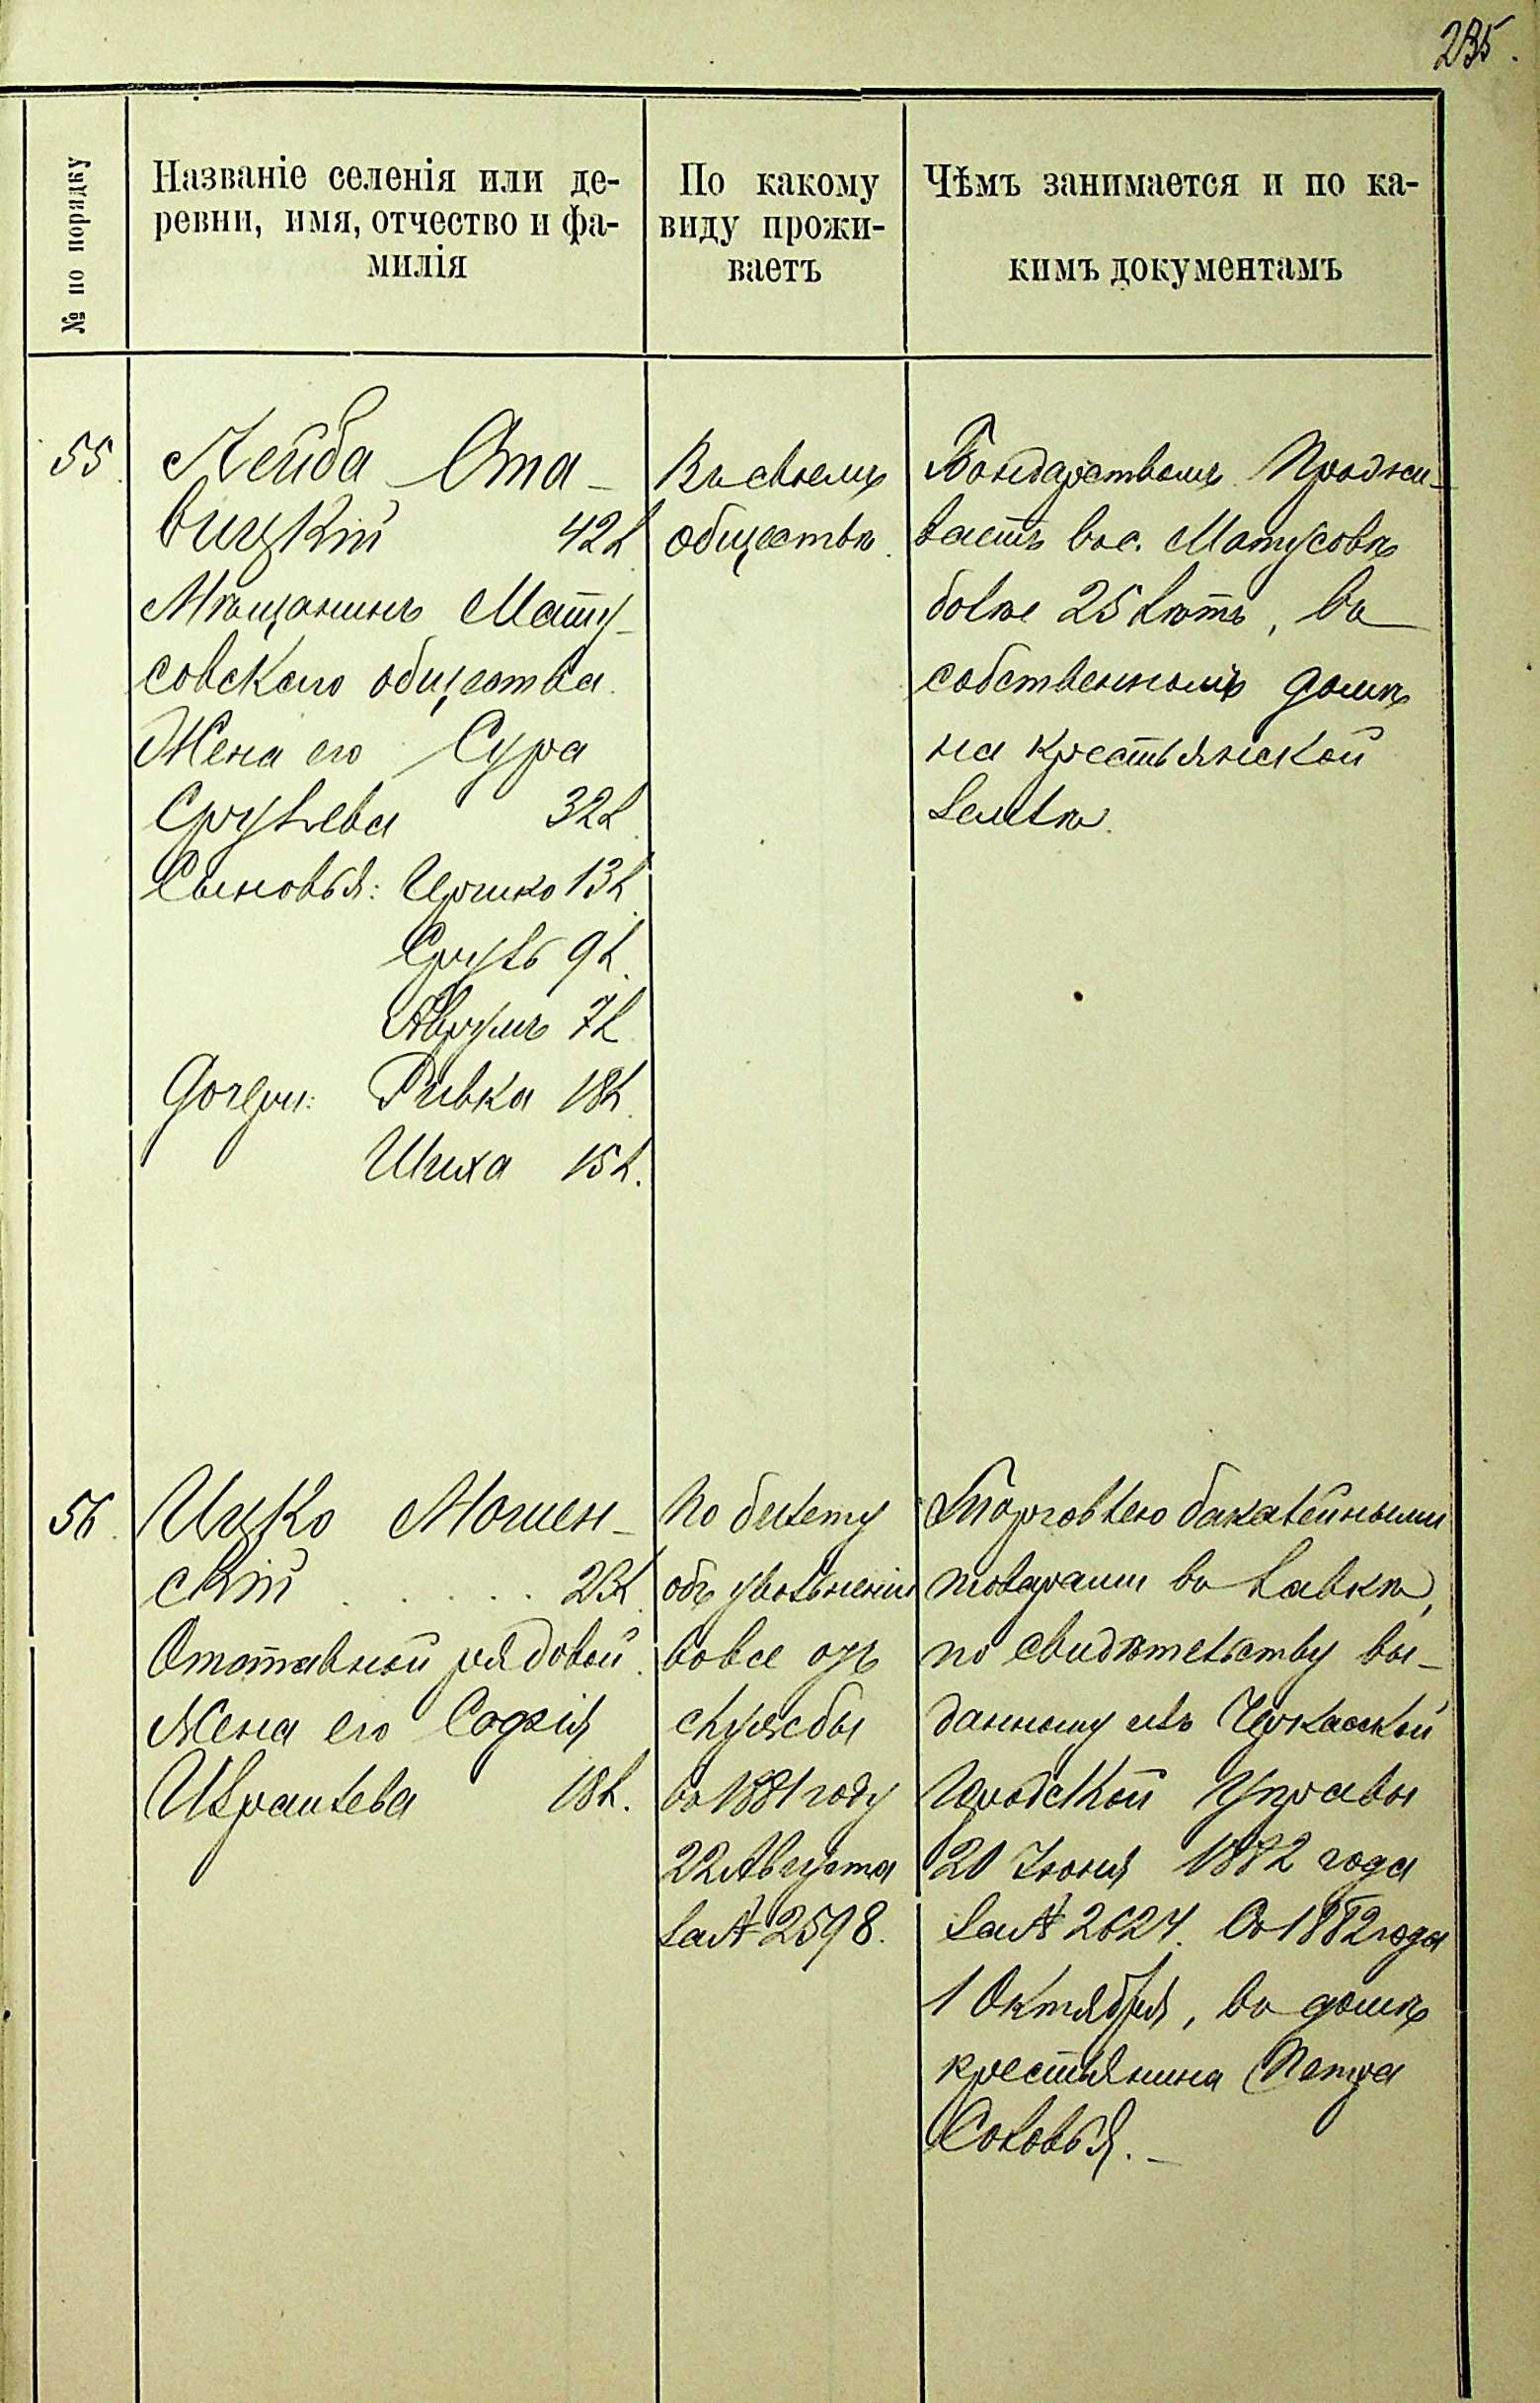 235.
№ по порядку
Названіе селенія или де-
ревни, имя, отчество и фа-
милія
По какому
виду прожи-
ваетъ
Чѣмъ занимается и по ка-
кимъ документамъ
55.
Лейба Ста-
вицкій 42 л.
Мѣщанинъ Мату-
совскаго общества.
Жена его Сура
Срулева 32 л.
Сыновья: Иршко 13 л.
Сруль 9 л.
Аврумъ 7 л.
Дочери: Ривка 18 л.
15 л.
Въ своемъ
обществѣ.
Бондарствомъ. Прожи-
ваетъ въ с. Матусовѣ
болѣе 25 лѣтъ, въ
собственномъ домѣ
на крестьянской
землѣ.
56.
Ицко Мошен-
скій . . . . . л.
Отставной рядовой.
Жена его Софія
Израилева 18 л.
По билету
объ увольненіи
вовсе отъ
службы
въ 1881 году
22 Августа
за № 2598.
Торговлею бакалейными
товарами въ лавкѣ,
по свидѣтельству вы-
данному изъ Черкасской
Городской Управы
20 Іюня 1882 года
за № 2624. Съ 1882 года
1 Октября, въ домѣ
крестьянина Петра
Соловья.-